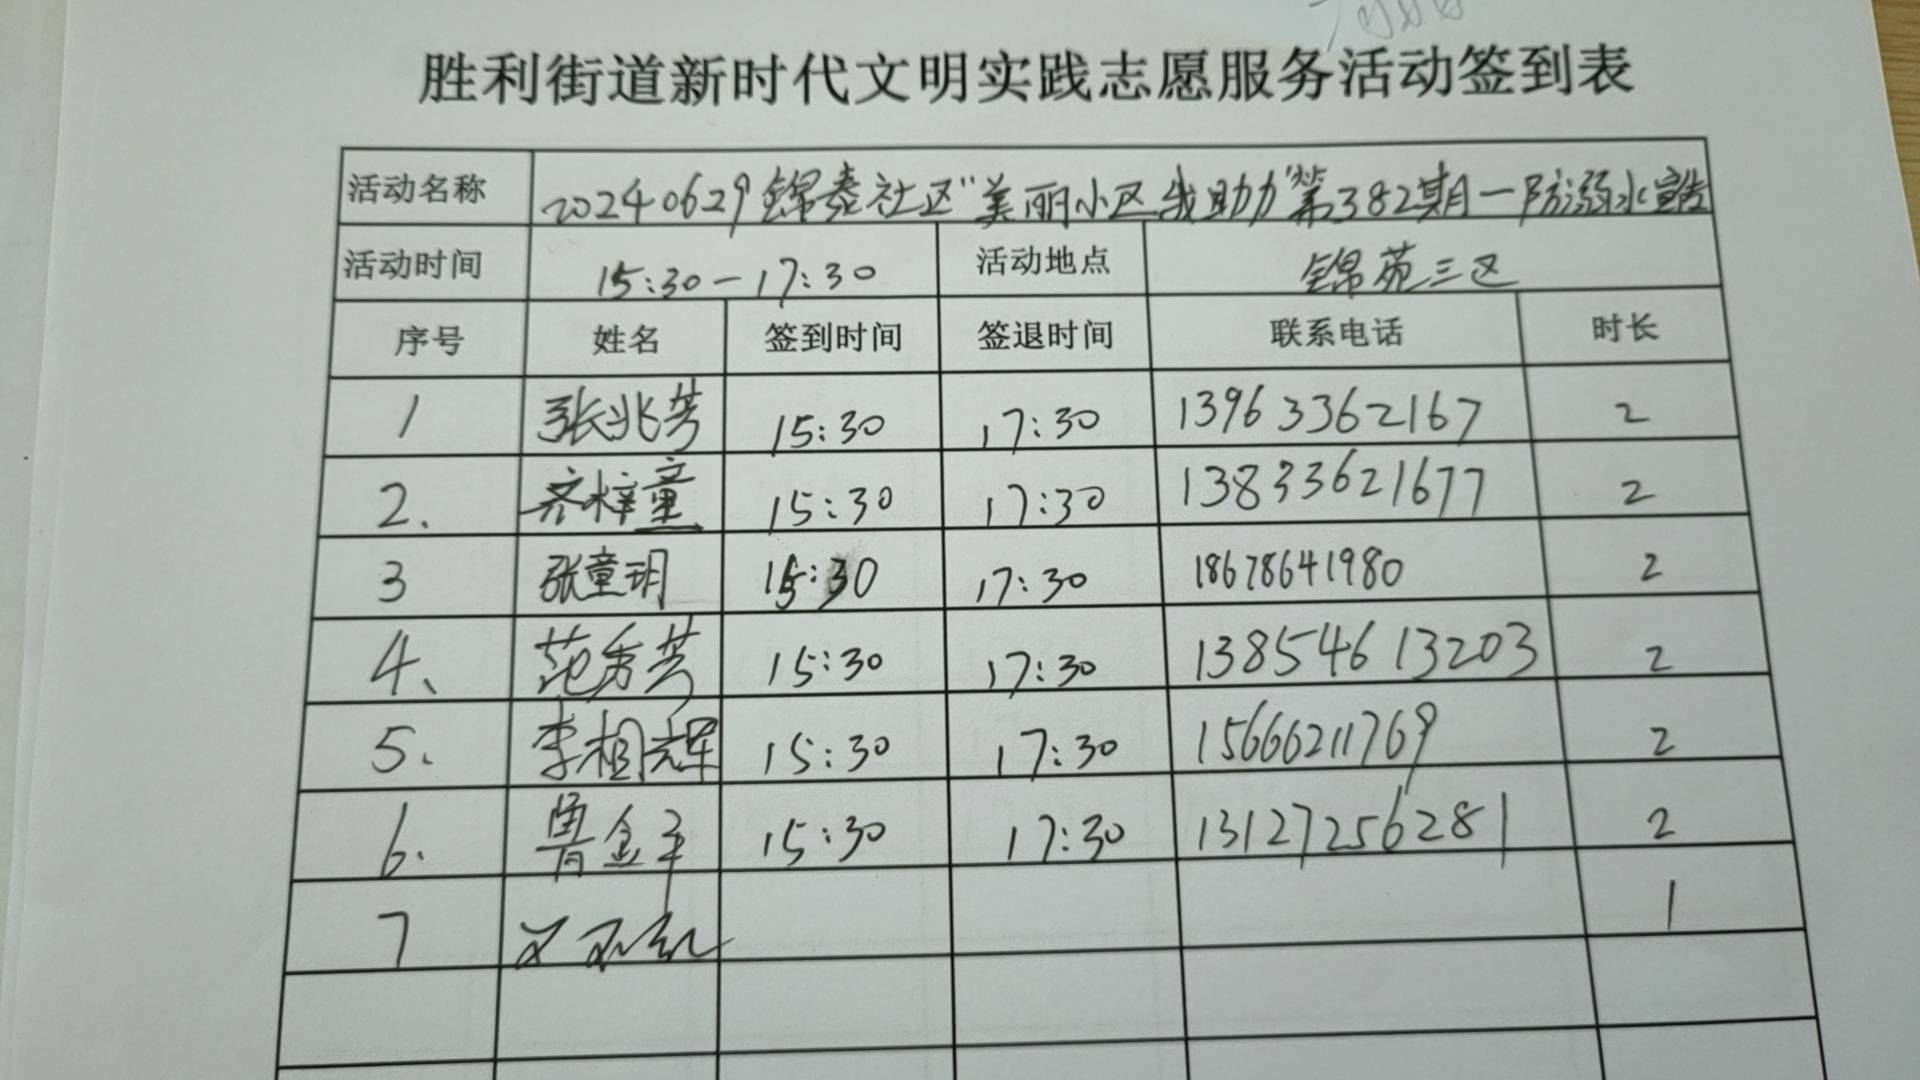 胜利街道新时代文明实践志愿服务活动签到表
活动名称 20240629锦泰社区"美丽小区我助力"第382期一防溺水宣传
活动时间 15:30-17:30 活动地点 锦苑三区
序号 姓名 签到时间 签退时间 联系电话 时长
1 张兆芳 15:30 17:30 13963362167 2
2、 齐梓童 15:30 17:30 13833621677 2
3 张童玥 15:30 17:30 18678641980 2
4、 范秀芳 15:30 17:30 13854613203 2
5、 李相辉 15:30 17:30 15666211769 2
6. 曹金平 15:30 17:30 13127256281 2
7 1